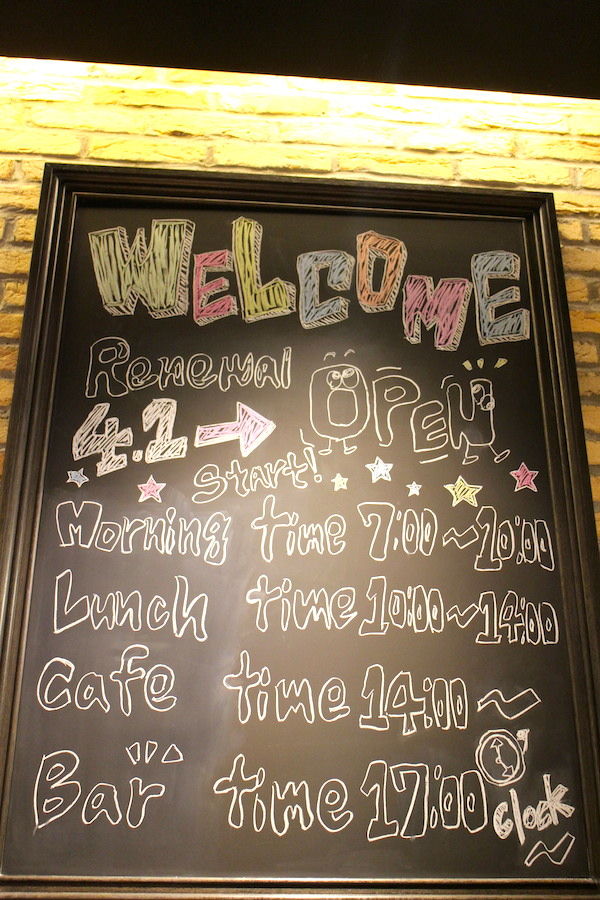 WELCOME
Renewal OPEN
4.1 → Start!
Morning time 7:00~10:00
Lunch time 10:00~14:00
Cafe time 14:00~
Bar time 17:00 clock ~